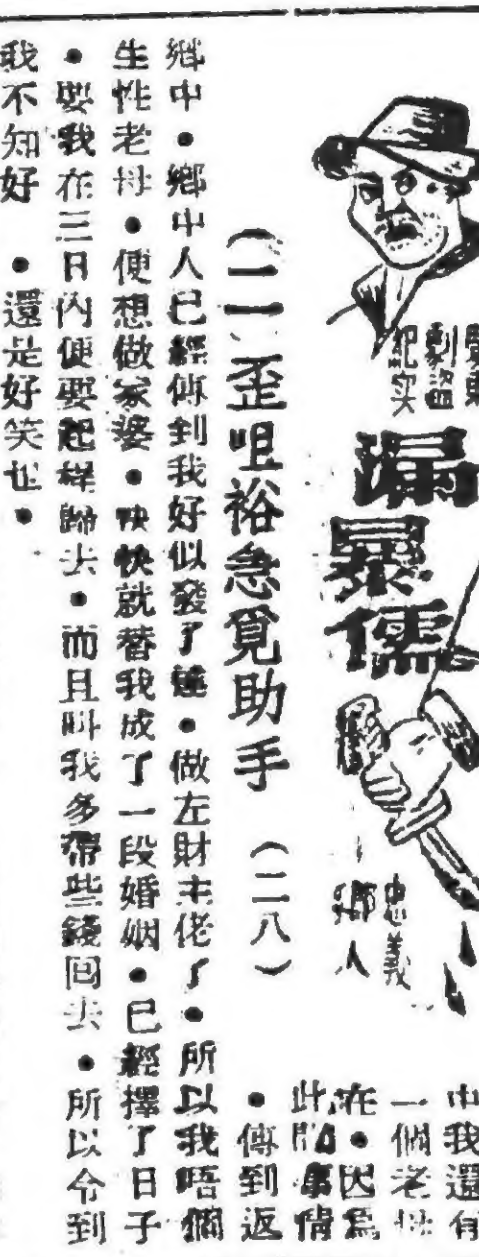 劇盜
紀实
漏暴儒
忠義
鄉人
(二)歪咀裕急覓助手 (二八)
中我還有
一個老母
在●因爲
此間事情
●傳到返
鄉中●鄉中人已經傳到我好似發了達●做左財主佬了●所以我唔個
生性老母●便想做家婆●快快就替我成了一段婚姻●已經擇了日子
●要我在三日內便要起程歸去●而且叫我多帶些錢回去●所以令到
我不知好 ●還是好笑也●